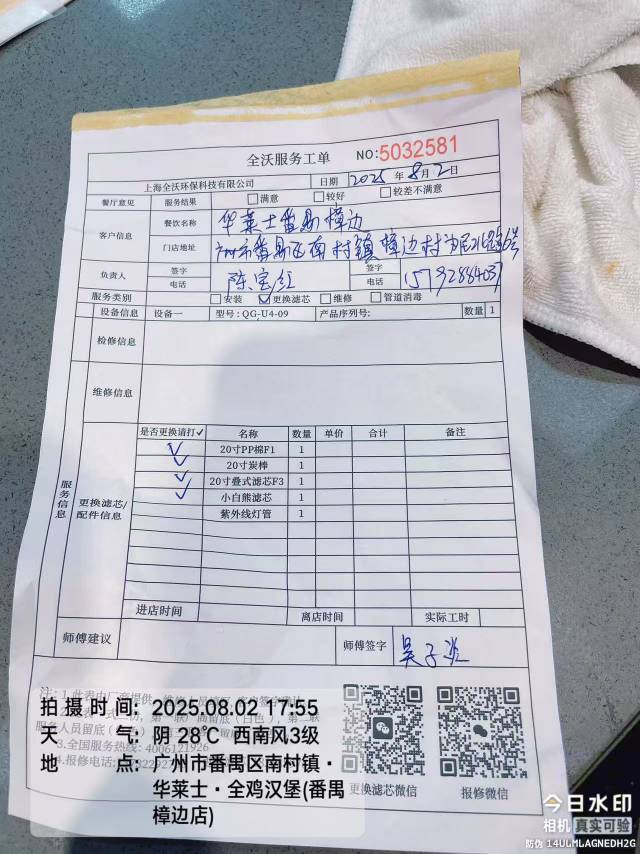 全沃服务工单
NO:5032581
上海全沃环保科技有限公司 日期 2025年8月2日
餐厅意见 服务结果 □满意 □较好 □较差不满意
客户信息 餐饮名称 华莱士番禺樟边
门店地址 广州市番禺区南村镇樟边村
负责人 签字 陈宝红 签字
电话 电话
服务类别 □安装 ☑更换滤芯 □维修 □管道消毒
设备信息 设备一 型号:QG-U4-09 产品序列号: 数量 1
检修信息
维修信息
服务信息
更换滤芯/配件信息
是否更换请打✓ 名称 数量 单价 合计 备注
✓ 20寸PP棉F1 1
✓ 20寸炭棒 1
✓ 20寸叠式滤芯F3 1
✓ 小白熊滤芯 1
紫外线灯管 1
进店时间 离店时间 实际工时
师傅建议 师傅签字
3.全国服务热线:4006121926
更换滤芯微信 报修微信
拍摄时间: 2025.08.02 17:55
天气: 阴 28℃ 西南风3级
地点: 广州市番禺区南村镇·
华莱士·全鸡汉堡(番禺
樟边店)
今日水印
相机 真实可验
防伪 14ULMLAGNEDH2G